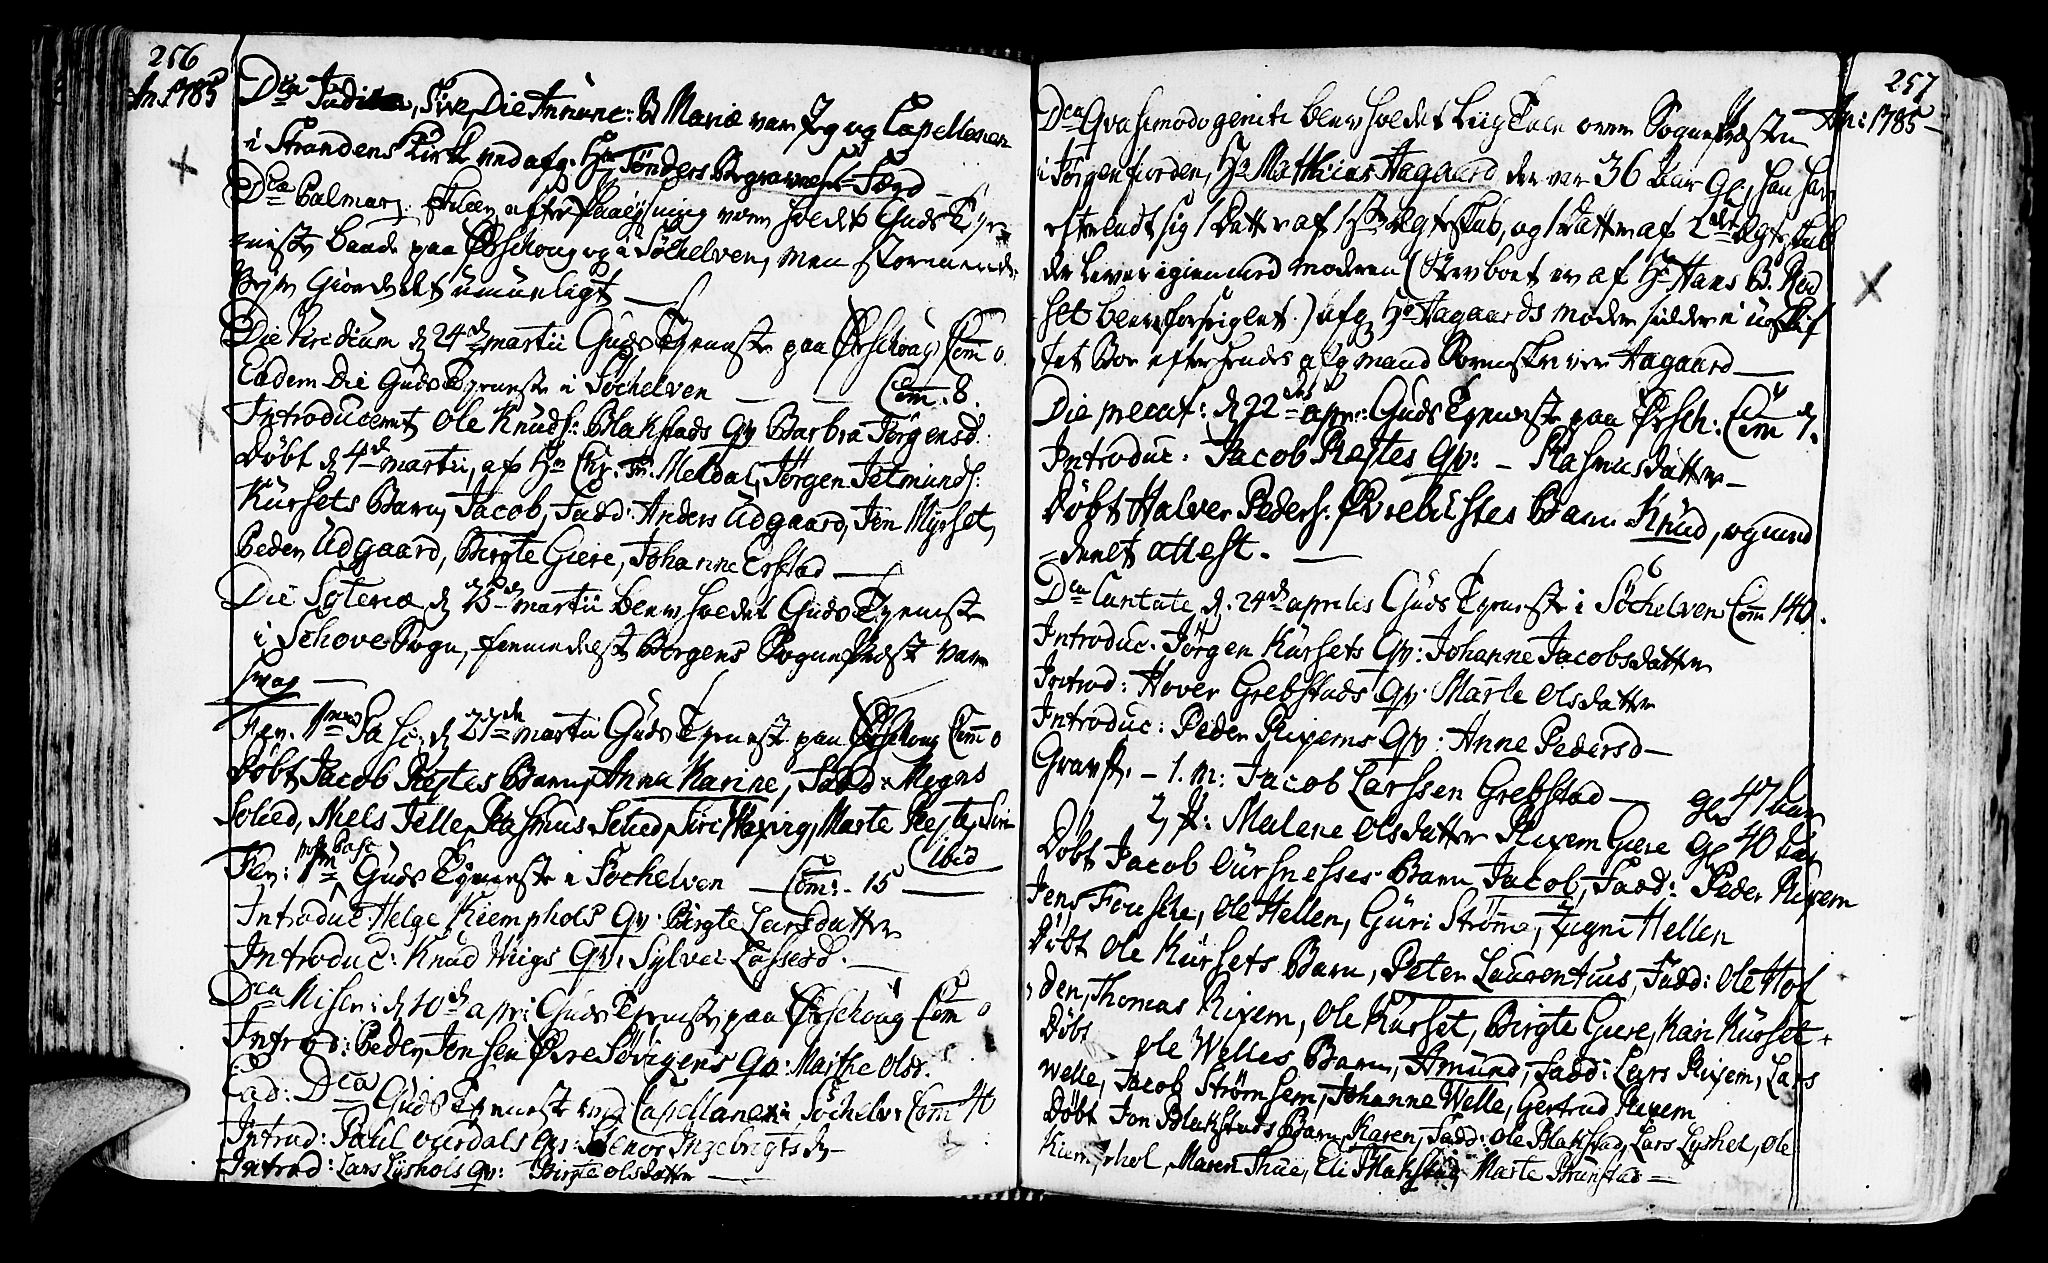 256
An: 1785
Dca Judica, sive Die Annunc: B Mariæ var Jeg og Capellanen
i Strandens Kirke ved afg: Hr Tønders Begravelse-Færd —
Dca Palmar: skulde efter Paalysning være holdt Guds Tyene-
=neste baade paa Ørschoug og i Söchelven, men stormende
Vejr giorde det umueligt —
Die Viridium d 24de Martii Guds Tyeneste paa Ørschoug Com 0
Eadem Die Guds Tyeneste i Söchelven — — Com. 8.
Introduceret Ole Knuds: Blakstads Qv Barbra Jørgensd.
Døbt d 4de Martii, af Hr Chr. Fr: Meldal, Jørgen Jetmunds:
Kursets Barn, Jacob, Fadd: Anders Udgaard, Jon Myrset,
Peder Udgaard, Birgte Giere, Johanne Erstad —
Die Soteriæ d 25de Martii blev holdet Guds Tyeneste
i Schove Sogn, formedelst Borgens Sognepræst var
svag —
Fer. 1ma Pasc: d 27de Martii Guds Tyeneste paa Ørschoug Com 0
Døbt Jacob Restes Barn, Anna Karine, Fadd: Mogns
Solied, Niels Jelle, Rasmus Solied, Siri Waxing, Marte Reste, Siri
ibid
Fer: 2da post Pasc Guds Tyeneste i Söchelven — Com: 15 —
Introduc: Helge Kiemphols Qv: Birgte Larsdatter
Introduc: Knud Wiigs Qv: Sylvei Lassesd. —
Dca Miser: d 10de apr: Guds Tyeneste paa Ørschoug Com 0
Introd: Peder Jensen Øvre Søvigens Qv: Marthe Olsd.
Ead: Dca Guds Tyeneste ved Capellanen i Söchelv: Com 40
Introd: Paul Overdals Qv: Elenor Ingebrigtsd —
Introd: Lars Lyshols Qv: Birgte Olsdatter —
257
An: 1785 —
Dca Qvasimodogeniti blev holdet Liig Tale over Sognepræsten
i Jørgenfiorden, Hr Matthias Aagaard der var 36 Aar Gl: han har
efterladt sig 1 Datter af 1ste Ægteskab, og 1 Datter af 2det Ægteskab
der lever igien med Moderen (Stervboet er af Hr Hans B. Rød
set blev forseiglet.) afg Hr Aagaards Moder sidder i uskif
tet Boe efter hendes afg mand Sorenskriver Aagaard —
Die precat: d 22de apr: Guds Tyeneste paa Ørsch: Com 7.
Introduc: Jacob Restes Qv: — Rasmusdatter —
Døbt Halver Peders: Øvrebustes Barn Knud, ægund
=denet attest. —
Dca Cantate d. 24de aprilis Guds Tyeneste i Söchelven Com 140.
Introduc. Jørgen Kursets Qv: Johanne Jacobsdatter
Introd: Hover Grebstads Qv: Marte Olsdatter
Introduc: Peder Rixems Qv: Anne Pedersd —
Gravf. — 1. m: Jacob Larssen Grebstad — Gl 47 aar
2, q: Malene Olsdatter Rixem Giere Gl 40 aar
Døbt Jacob Oursnesses Barn Jacob, Fadd: Peder Rixem
Jens Fousche, Ole Hellen, Guri Strøme, Zugni Hellen
Døbt Ole Kursets Barn, Peter Laurentius, Fadd: Ole Hof
den, Thomas Rixem, Ole Kurset, Birgte Giere, Kari Kurset
Døbt Ole Welles Barn, Amund, Fadd: Lars Rixem, Lars
Welle, Jacob Strømhem, Johanne Welle, Gertrud Rixem
Døbt Jon Blakstads Barn, Karen, Fadd: Ole Blakstad, Lars Lyshol, Ole
Kiemphol, Maren Thue, Eli Blakstad, Marte Brunstad —